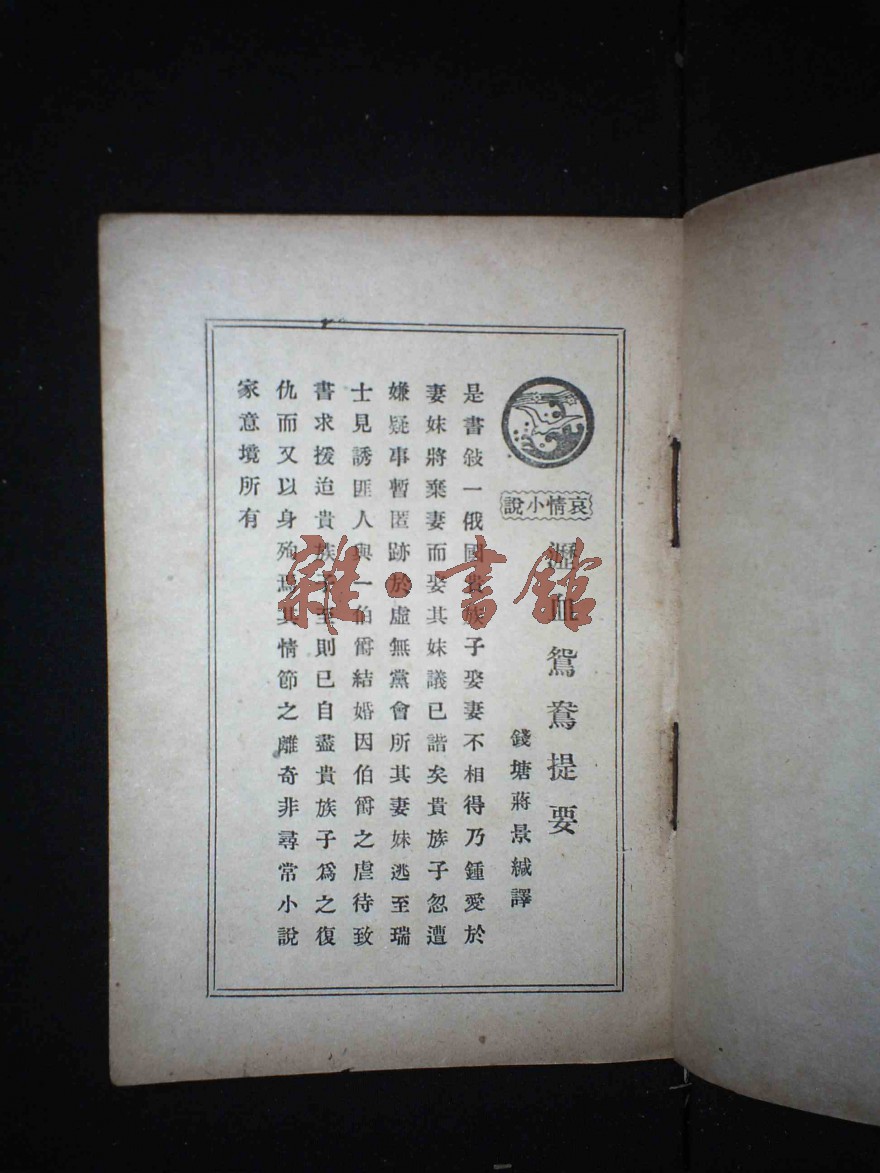 哀情小說
瀝血鴛鴦提要
錢塘蔣景緘譯
是書敍一俄國貴族子娶妻不相得乃鍾愛於
妻妹將棄妻而娶其妹議已諧矣貴族子忽遭
嫌疑事暫匿跡於虛無黨會所其妻妹逃至瑞
士見誘匪人與一伯爵結婚因伯爵之虐待致
書求援迨貴族子至則已自盡貴族子爲之復
仇而又以身殉焉其情節之離奇非尋常小說
家意境所有
雜·書館